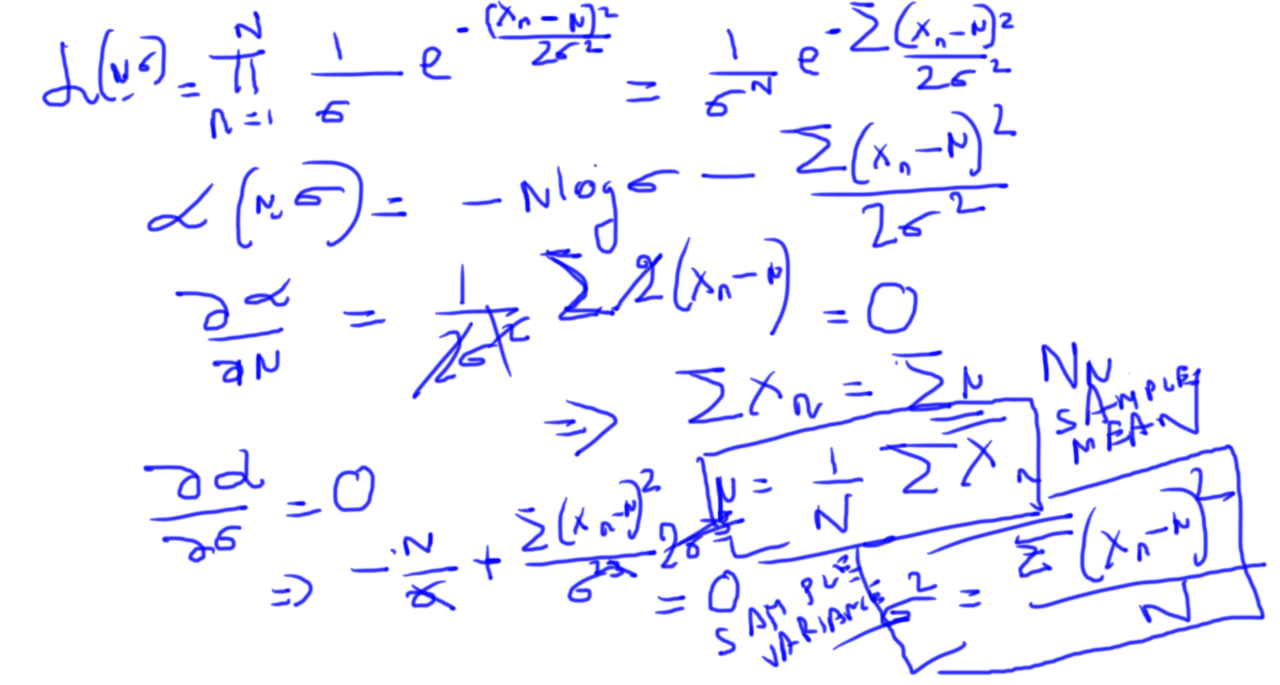 L(μ,σ) = ∏_{n=1}^{N} 1/σ e^{-(x_n-μ)²/2σ²} = 1/σ^N e^{-Σ(x_n-μ)²/2σ²}
α(μ,σ) = -N log σ - Σ(x_n-μ)²/2σ²
∂α/∂μ = 1/2σ² Σ 2(x_n-μ) = 0
⇒ Σx_n = Σμ Nμ
μ = 1/N Σx_n SAMPLE MEAN
∂α/∂σ = 0
⇒ -N/σ + Σ(x_n-μ)²/σ³ = 0
SAMPLE VARIANCE σ² = Σ(x_n-μ)²/N